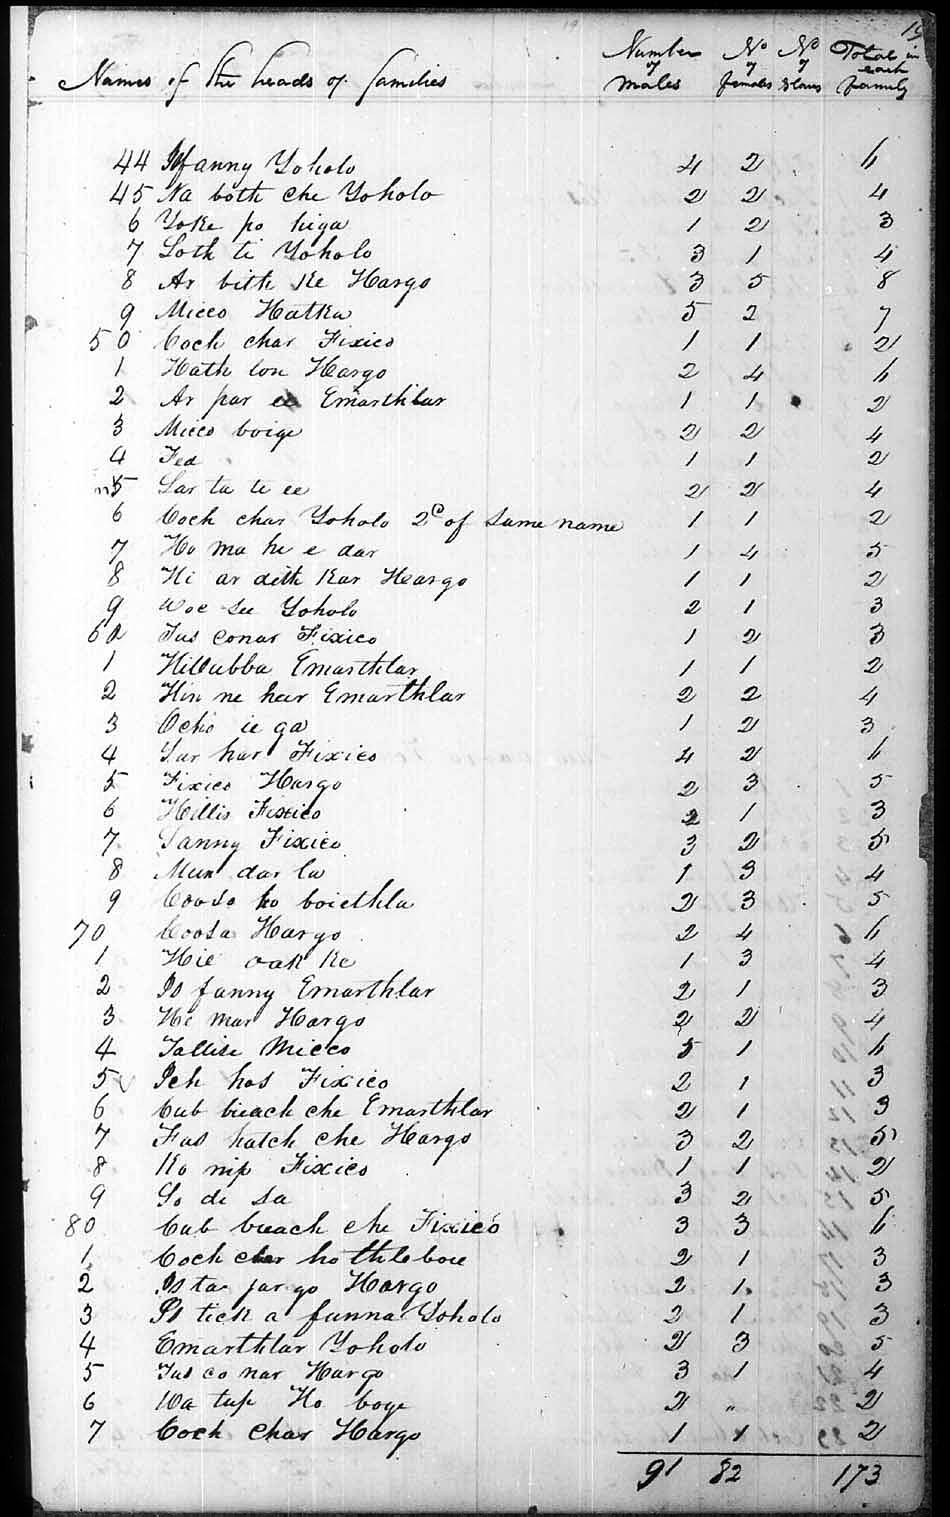 19
19
Names of the heads of families Number of males No of females No of Slaves Total in each family
44 Is fanny Yoholo 4 2 6
45 Na both che Yoholo 2 2 4
6 Yoke po higa 1 2 3
7 Loth ti Yoholo 3 1 4
8 Ar bith Ke Hargo 3 5 8
9 Micco Hatka 5 2 7
50 Coch char Fixico 1 1 2
1 Hath lon Hargo 2 4 6
2 Ar par Emarthlar 1 1 2
3 Micco boige 2 2 4
4 Fed 1 1 2
5 Lar ta te ee 2 2 4
6 Coch char Yoholo 2d of Same name 1 1 2
7 Ho ma hi e dar 1 4 5
8 Hi ar dith Kar Hargo 1 1 2
9 Woc see Yoholo 2 1 3
60 Tus conar Fixico 1 2 3
1 Hillubba Emarthlar 1 1 2
2 Hin ne har Emarthlar 2 2 4
3 Ocho ie ga 1 2 3
4 Lar har Fixico 4 2 6
5 Fixico Hargo 2 3 5
6 Hillis Fixico 2 1 3
7 Sanny Fixico 3 2 5
8 Mun dar la 1 3 4
9 Coosa ko boiethla 2 3 5
70 Coosa Hargo 2 4 6
1 Hie oak Ke 1 3 4
2 Is fanny Emarthlar 2 1 3
3 He mar Hargo 2 2 4
4 Tallise Micco 5 1 6
5 Ich hos Fixico 2 1 3
6 Cub bieach che Emarthlar 2 1 3
7 Fus hatch che Hargo 3 2 5
8 Ko nip Fixico 1 1 2
9 So de sa 3 2 5
80 Cub bieach che Fixico 3 3 6
1 Coch char ho thle boie 2 1 3
2 Is ta jar go Hargo 2 1 3
3 Is tick a funna Yoholo 2 1 3
4 Emarthlar Yoholo 2 3 5
5 Tus co nar Hargo 3 1 4
6 Wa tup Ho boye 2 " 2
7 Coch char Hargo 1 1 2
91 82 173